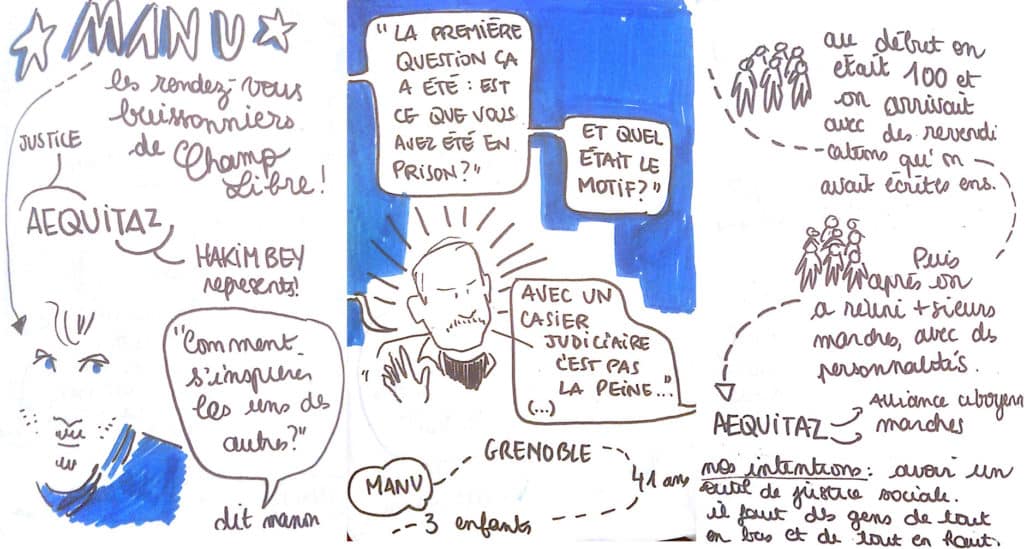 MANU
les rendez-vous
buissonniers
de Champ
Libre!
JUSTICE
AEQUITAZ
HAKIM BEY
represents!
"Comment
s'inspirer
les uns des
autres?"
dit manon
"LA PREMIÈRE
QUESTION ÇA
A ÉTÉ : EST
CE QUE VOUS
AVEZ ÉTÉ EN
PRISON?"
ET QUEL
ÉTAIT LE
MOTIF?"
AVEC UN
CASIER
JUDICIAIRE
C'EST PAS
LA PEINE...
(...)
GRENOBLE
MANU
41 ans
3 enfants
au début on
était 100 et
on arrivait
avec des revendi
cations qu'on
avait écrites ens.
Puis
après on
a réuni +sieurs
marches, avec des
personnalités.
AEQUITAZ
Alliance citoyenne
marches
nos intentions : avoir un
outil de justice sociale.
il faut des gens de tout
en bas et de tout en haut.